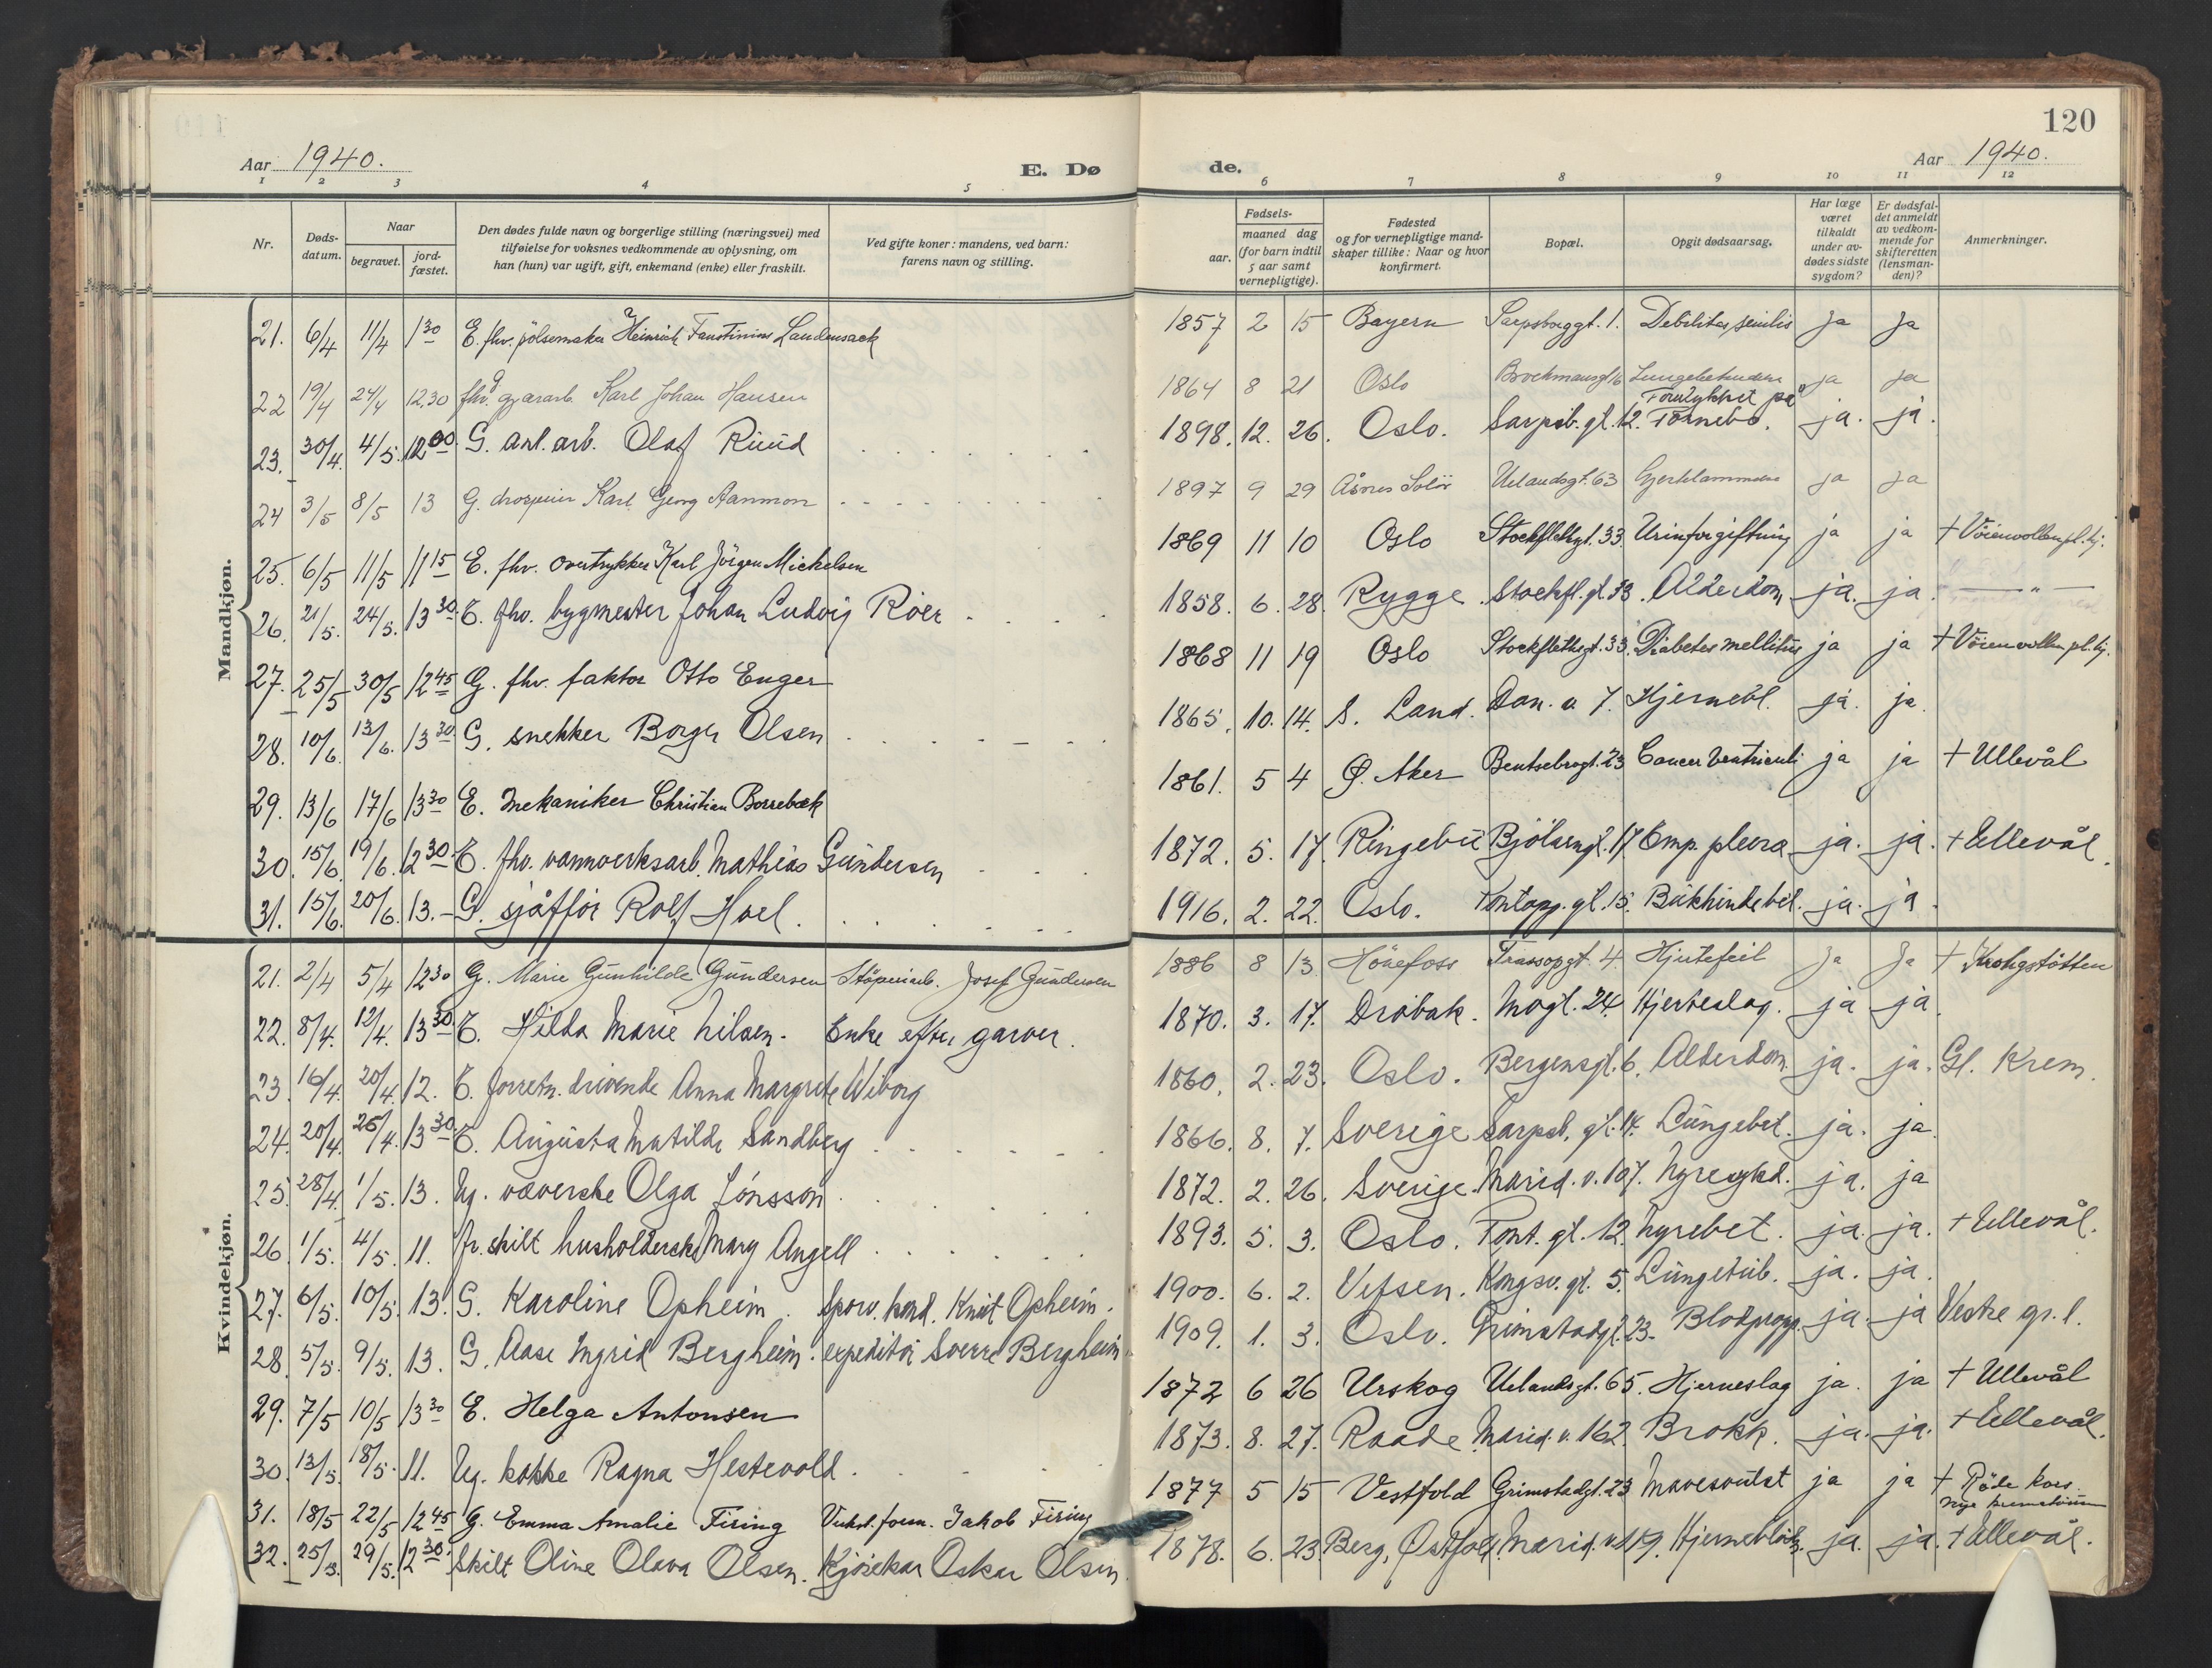 120
Aar 1940.
E. Dø
de.
Aar 1940.
1 2 3 4 5 6 7 8 9 10 11 12
Nr.
Døds-
datum.
Naar
begravet.
jord-
fæstet.
Den dødes fulde navn og borgerlige stilling (næringsvei) med
tilføielse for voksnes vedkommende av oplysning, om
han (hun) var ugift, gift, enkemand (enke) eller fraskilt.
Ved gifte koner: mandens, ved barn:
farens navn og stilling.
Fødsels-
aar.
maaned dag
(for barn indtil
5 aar samt
vernepligtige).
Fødested
og for vernepligtige mand-
skaper tillike: Naar og hvor
konfirmert.
Bopæl.
Opgit dødsaarsag.
Har læge
været
tilkaldt
under av-
dødes sidste
sygdom?
Er dødsfal-
det anmeldt
av vedkom-
mende for
skifteretten
(lensman-
den)?
Anmerkninger.
Mandkjøn.
21. 6/4 11/4 1 30 E. fhv. pölsemaker Heinrich Faustinius Laudensack 1857 2 15 Bayern Sarpsborggt. 1. Debilitas senilis Ja Ja
22 19/4 24/4 12.30 fhv. Karl Johan Hansen 1864 8 21 Oslo ja ja
23. 30/4. 4/5. 12 00. G. anl. arb. Olaf Ruud 1898. 12. 26. Oslo. Sarpsb. gt. 12. Forulykket på Fornebo. ja. ja.
24 3/5 8/5 13 G. Karl Georg Aanmon 1897 9 29 Åsnes Solör Uelandsgt. 63 Hjerteklammere ja ja
25. 6/5 11/5 11 15 E. fhv. overtrykker Karl Jörgen Michelsen 1869 11 10 Oslo Stockflethgt. 33. Urinforgiftning ja ja + Vöienvollen pl. hj.
26. 21/5. 24/5. 13 30. E. fhv. bygmester Johan Ludvig Röer 1858. 6. 28. Rygge. Stockfl. gt. 33. Alderdom ja. ja. — " —
27. 25/5 30/5 12 45 G. fhv. faktor Otto Enger 1868 11 19 Oslo Stockflethsgt. 33. Diabetes mellitus ja ja + Vöienvollen pl. hj.
28. 10/6. 13/6. 13 30. G. snekker Borger Olsen 1865. 10. 14. S. Land. Dan. v. 7. Hjernebl. ja. ja.
29. 13/6 17/6 13 30 E. Mekaniker Christian Borrebæk 1861. 5 4 Ö. Aker Bentsebrogt. 23 Cancer Ventriculi ja ja + Ullevål
30. 15/6. 19/6. 12 30 E. fhv. vannverksarb. Mathias Gundersen 1872. 5. 17. Ringebu Bjölsengt. 17. Emp. pleura ja. ja. + Ullevål.
31. 15/6. 20/6. 13. – G. sjåfför Rolf Hoel. 1916. 2. 22. Oslo. Tontopp. gt. 15. Bukhindebet. ja. ja.
Kvindekjøn.
21. 2/4 5/4 12 30 G. Marie Gunhilde Gundersen Stöperiarb. Josef Gundersen 1886 8 13 Hönefoss 4. Hjertefeil Ja Ja + Krohgstötten
22. 8/4. 12/4. 13 30 E. Hilda Marie Nilsen. Enke efter garver. 1870. 3. 17. Dröbak. Mogt. 24. Hjerteslag. ja ja.
23. 16/4. 20/4. 12. E. forretn. drivende Anna Margrete Wiborg 1860. 2. 23. Oslo. Bergensgt. 6. Alderdom. ja. ja. Gl. Krem.
24. 20/4. 26/4. 13 30. E. Augusta Matilde Sandberg 1866. 8. 7. Sverige Sarpsb. gt. 14. Lungebet. ja. ja.
25. 28/4. 1/5. 13. Ug. væverske Olga Jónsson. 1872. 2. 26. Sverige. Marid. v. 107. Nyresykd. ja. ja
26. 1/5. 4/5. 11. fr. skilt husholderske Mary Angell 1893. 5. 3. Oslo. Tont. gt. 12. Nyrebet. ja. ja. + Ullevål.
27. 6/5. 10/5. 13. G. Karoline Opheim. Sporv. kond. Knut Opheim. 1900. 6. 2. Vefsen. Kongsv. gt. 5. Lungetub. ja. ja.
28. 5/5. 9/5. 13. G. Aase Ingrid Bergheim. expeditör Sverre Bergheim. 1909. 1. 3. Oslo. Grimstadgt. 23. Blodpropp. ja. ja Vestre gr. l.
29. 7/5 10/5 13 30 E. Helga Antonsen 1872 6 26 Urskog Uelandsgt. 65. Hjerneslag ja. ja + Ullevål
30. 13/5. 18/5. 11. Ug. kokke Ragna Hestevold. 1873. 8. 27. Raade. Marid. v. 162. Brokk. ja. ja. + Ullevål.
31. 18/5 22/5 12 45 G. Emma Amalie Firing Verkst. form. Jakob Firing 1877 5 15 Vestfold Grimstadgt. 23 Mavesvulst ja ja + Röde kors nye krematorium
32. 25/5. 29/5. 12 30. Skilt Oline Olava Olsen. Kjörekar Oskar Olsen. 1878. 6. 23. Berg, Østfold. Marid. v. 119. Hjerneblödn. ja. ja. + Ullevål.